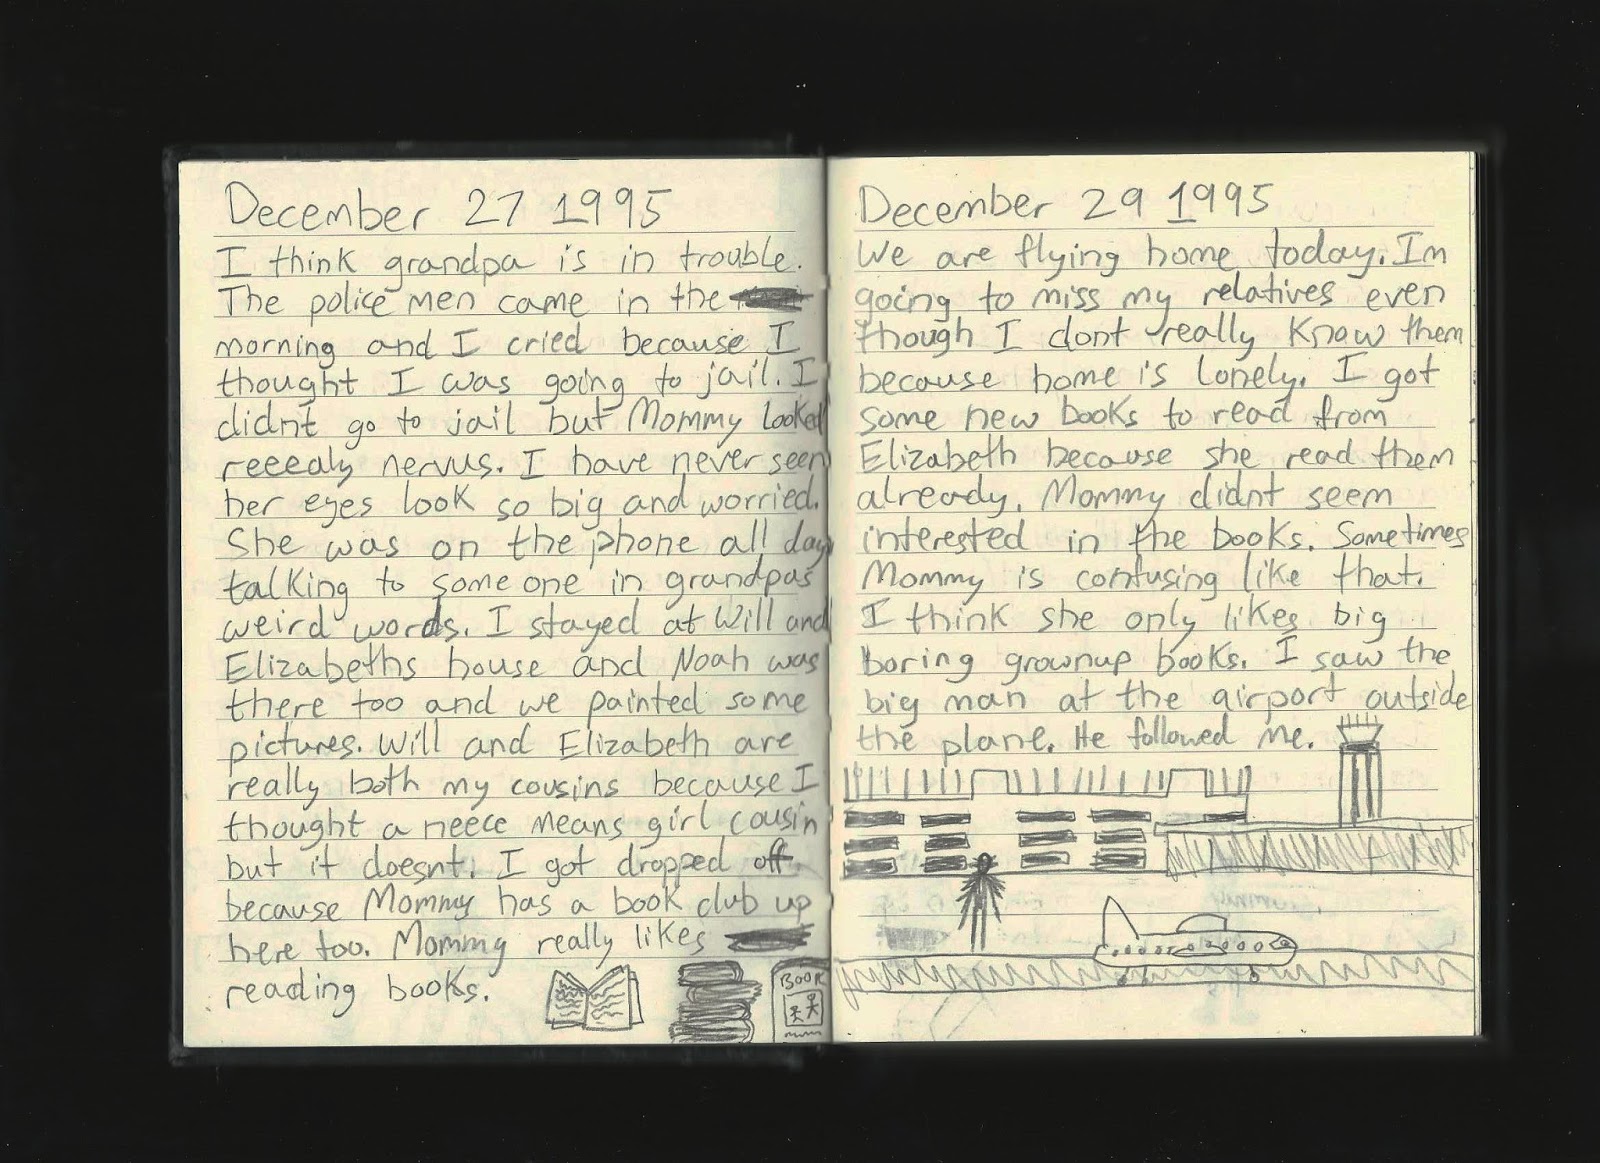 December 27 1995
I think grandpa is in trouble.
The police men came in the
morning and I cried because I
thought I was going to jail. I
didnt go to jail but Mommy looked
reeealy nervus. I have never seen
her eyes look so big and worried.
She was on the phone all day
talking to some one in grandpas
weird words. I stayed at Will and
Elizabeths house and Noah was
there too and we painted some
pictures. Will and Elizabeth are
really both my cousins because I
thought a neece means girl cousin
but it doesnt. I got dropped off
because Mommy has a book club up
here too. Mommy really likes
reading books.
BOOK
December 29 1995
We are flying home today. Im
going to miss my relatives even
though I dont really know them
because home is lonely. I got
some new books to read from
Elizabeth because she read them
already. Mommy didnt seem
interested in the books. Sometimes
Mommy is confusing like that.
I think she only likes big
boring grownup books. I saw the
big man at the airport outside
the plane. He followed me.